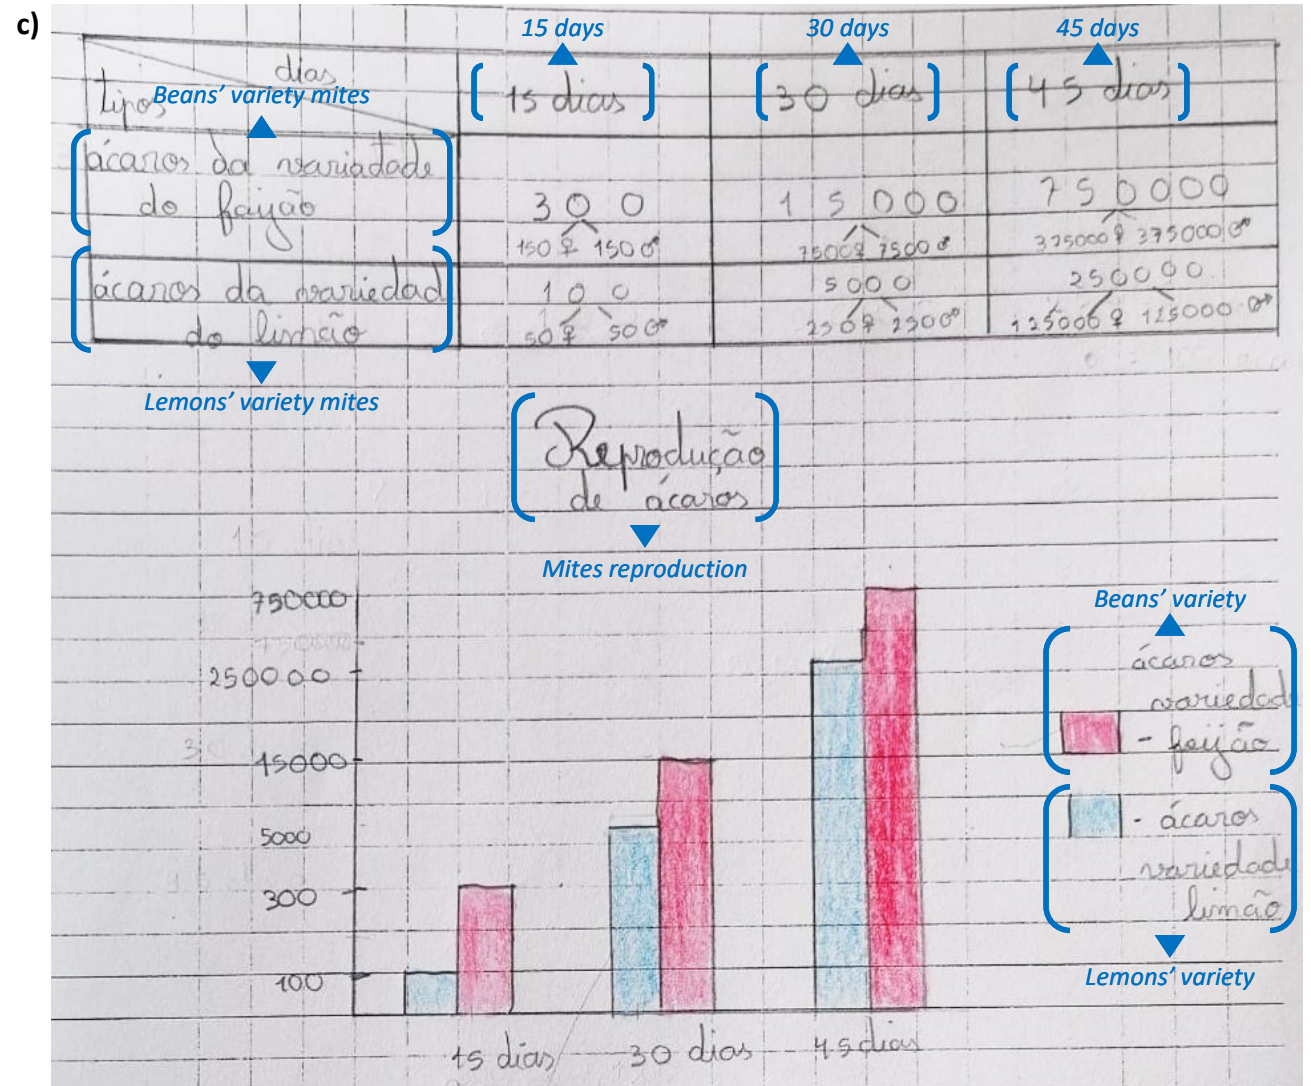 c)
15 days 30 days 45 days
dias
tipos
Beans' variety mites
15 dias 30 dias 45 dias
ácaros da variadade
do feijão
300 15000 750000
150♀ 150♂ 7500♀ 7500♂ 325000♀ 375000♂
ácaros da variedad
do limão
100 5000 250000
50♀ 50♂ 250♀ 2500♂ 125000♀ 125000♂
Lemons' variety mites
Reprodução
de ácaros
Mites reproduction
750000
250000
15000
5000
300
100
15 dias 30 dias 45 dias
Beans' variety
ácaros
variedade
- feijão
- ácaros
variedade
limão
Lemons' variety